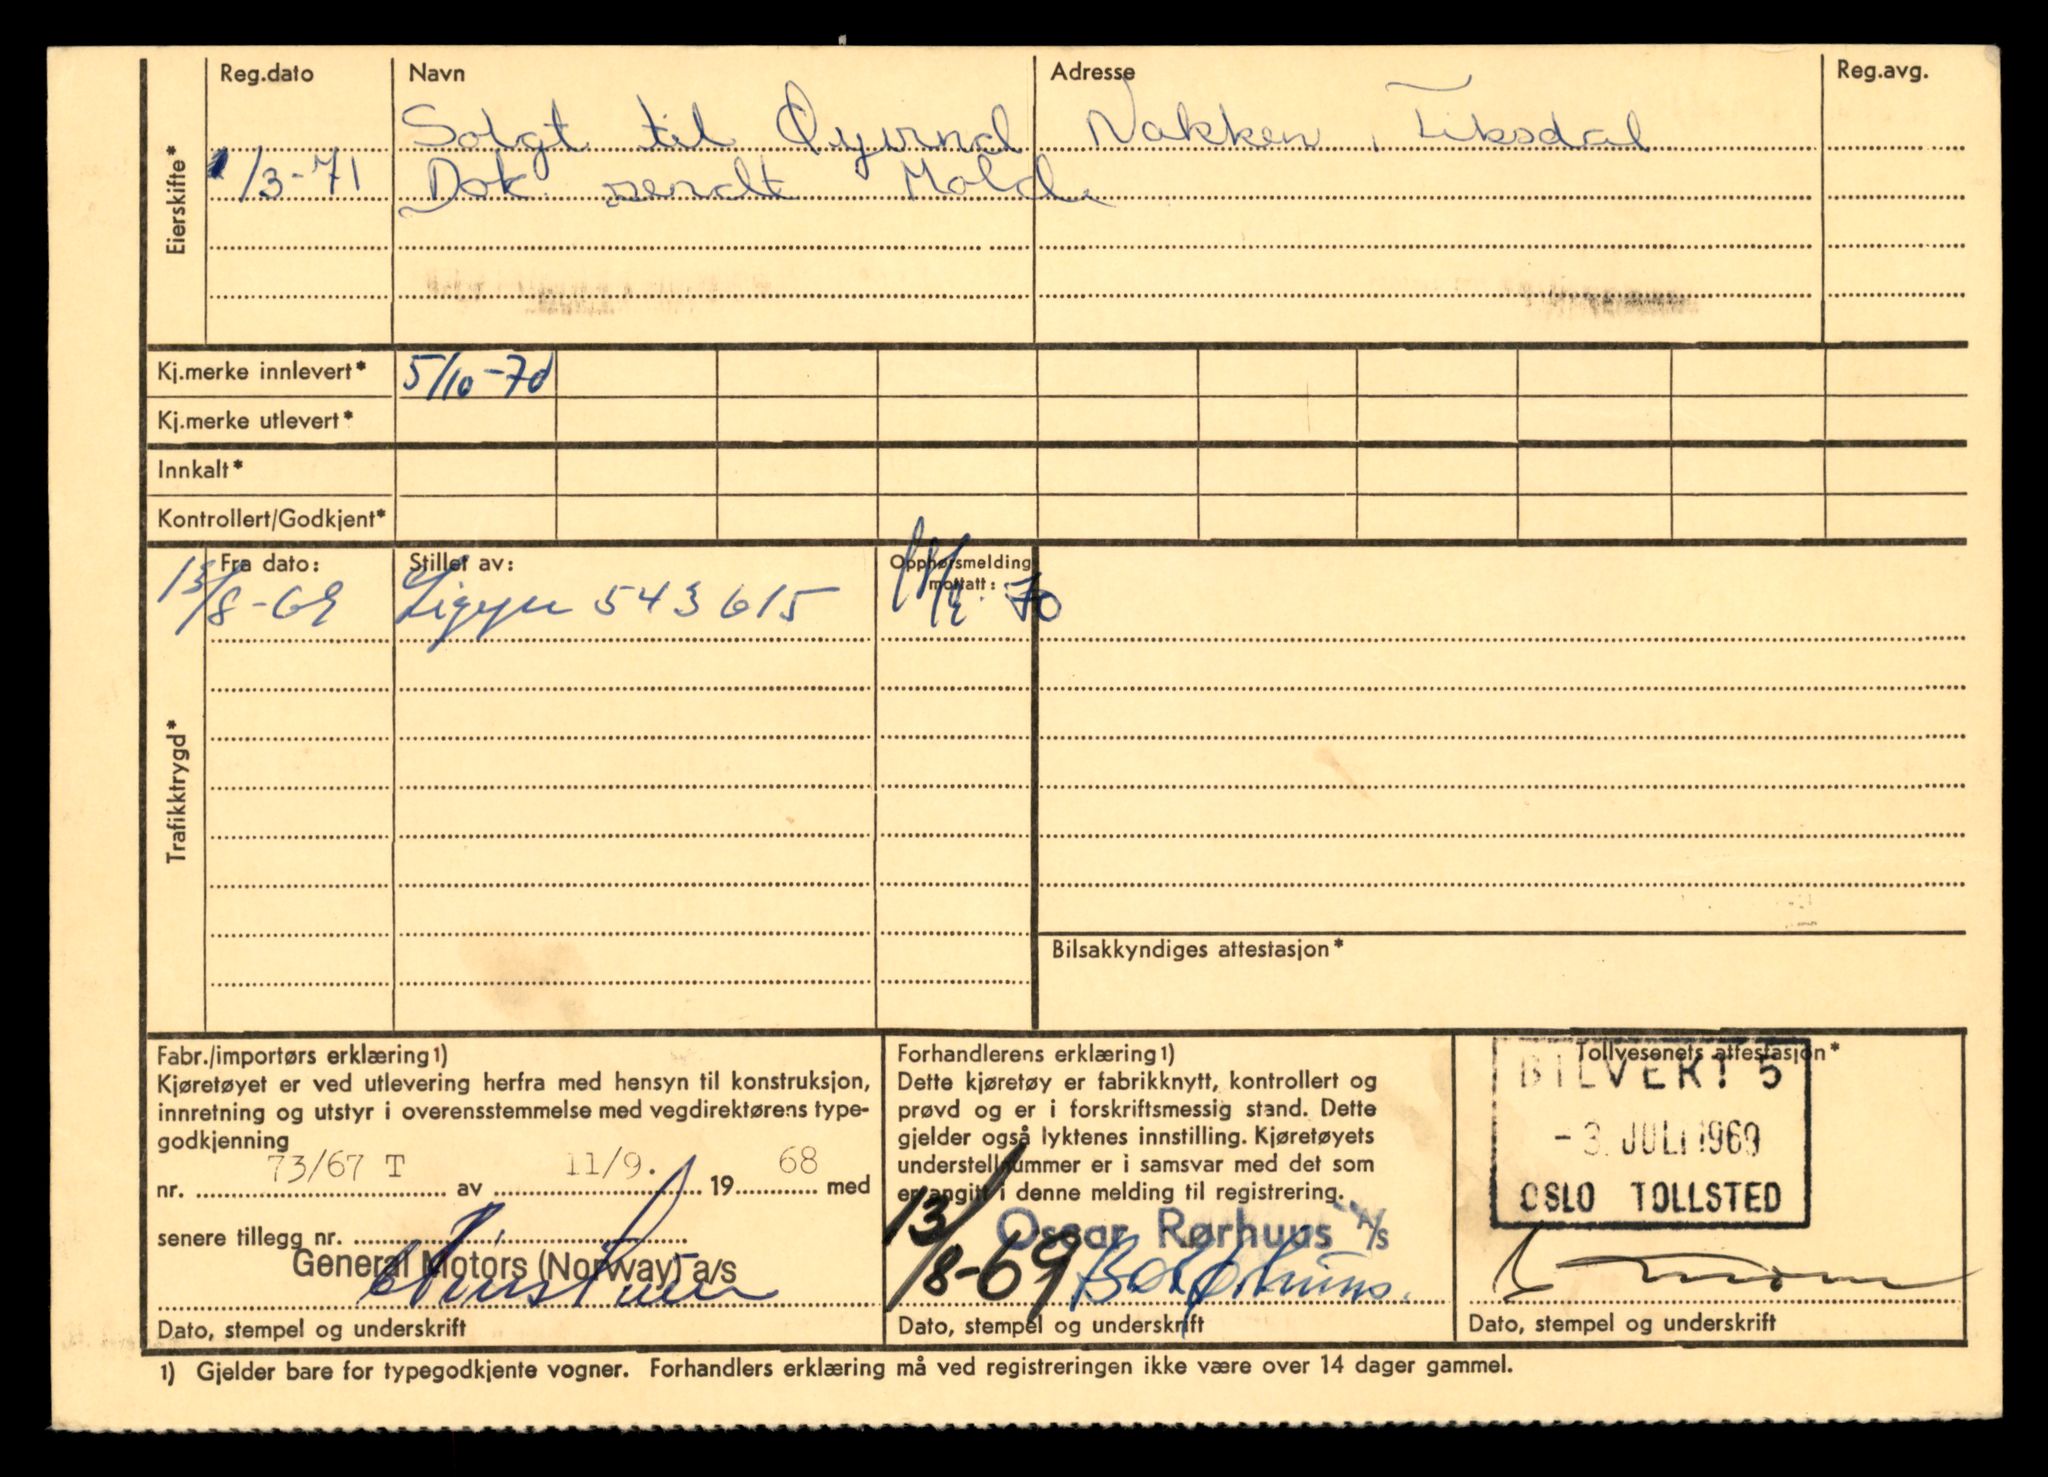 Reg.dato Navn Adresse Reg.avg.
Eierskifte*
Solgt til Øyvind Nakken, Fiksdal
1/3-71 Dok sendt Molde
Kj.merke innlevert* 5/10-70
Kj.merke utlevert*
Innkalt*
Kontrollert/Godkjent*
Trafikktrygd*
Fra dato: Stillet av: Opphørsmelding
mottatt:
13/8-69 543615 70
Bilsakkyndiges attestasjon*
Fabr./importørs erklæring1)
Kjøretøyet er ved utlevering herfra med hensyn til konstruksjon,
innretning og utstyr i overensstemmelse med vegdirektørens type-
godkjenning
nr. 73/67 T av 11/9. 1968 med
senere tillegg nr.
General Motors (Norway) a/s
Dato, stempel og underskrift
Forhandlerens erklæring1)
Dette kjøretøy er fabrikknytt, kontrollert og
prøvd og er i forskriftsmessig stand. Dette
gjelder også lyktenes innstilling. Kjøretøyets
understellnummer er i samsvar med det som
er angitt i denne melding til registrering.
Oscar Rørhuus A/S
13/8-69
Dato, stempel og underskrift
Tollvesenets attestasjon*
BILVEKT 5
-3. JULI 1969
OSLO TOLLSTED
Dato, stempel og underskrift
1) Gjelder bare for typegodkjente vogner. Forhandlers erklæring må ved registreringen ikke være over 14 dager gammel.